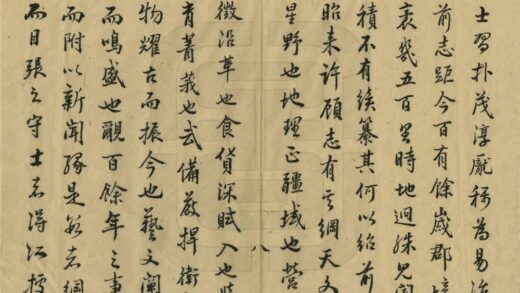 士習朴茂淳龎稱為易治
前志距今百有餘歲郡境
袤幾五百里時地迥殊見聞
積不有續纂其何以紹前
昭来許顧志有綱天文
星野也地理正疆域也營
八
徵沿革也食貨深賦入也
育菁莪也武備嚴捍衛
物耀古而振今也藝文闡
而鳴盛也覩百餘年之事
而附以新聞緣是綱
而目張之守士者得江